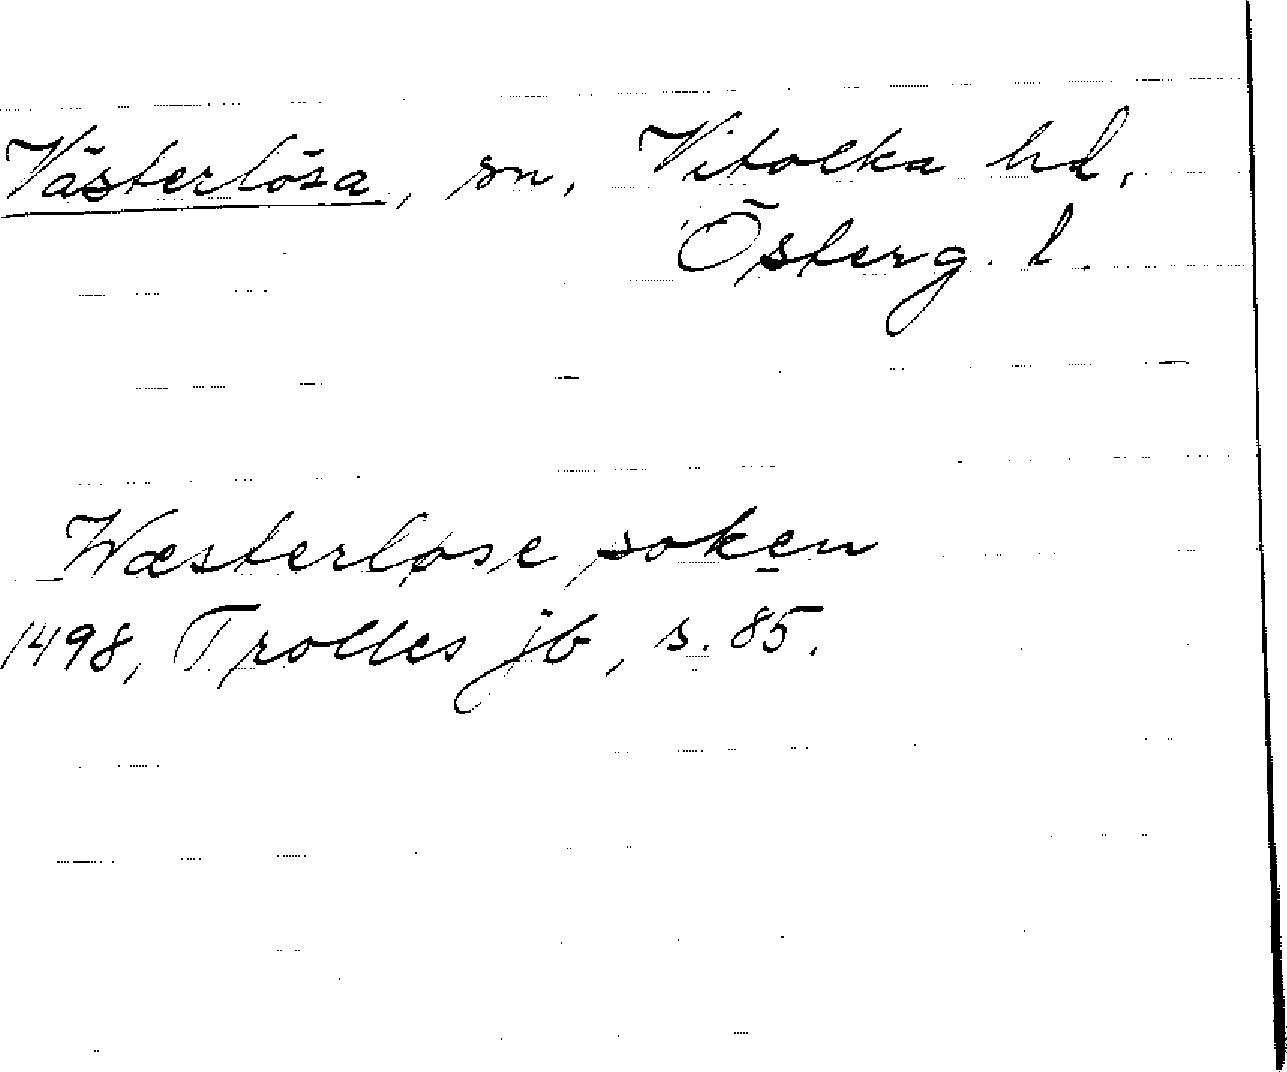 Västerlösa, sn, Vifolka hd,
Österg. l.
Wæsterløse soken
1498, Trolles jb, s. 85.